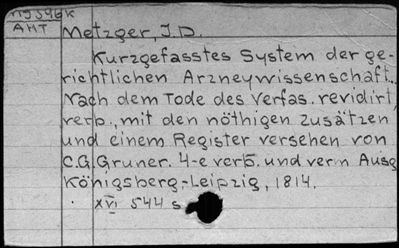 AHT
Metzger, J.D.
Kurzgefasstes System der ge-
richtlichen Arzneywissenschaft..
Nach dem Tode des Verfas. revidirt,
verb., mit den nöthigen Zusätzen
und einem Register versehen von
C.G. Gruner. 4-e verb. und verm Ausg
Königsberg-Leipzig, 1814.
XVI 544 s.